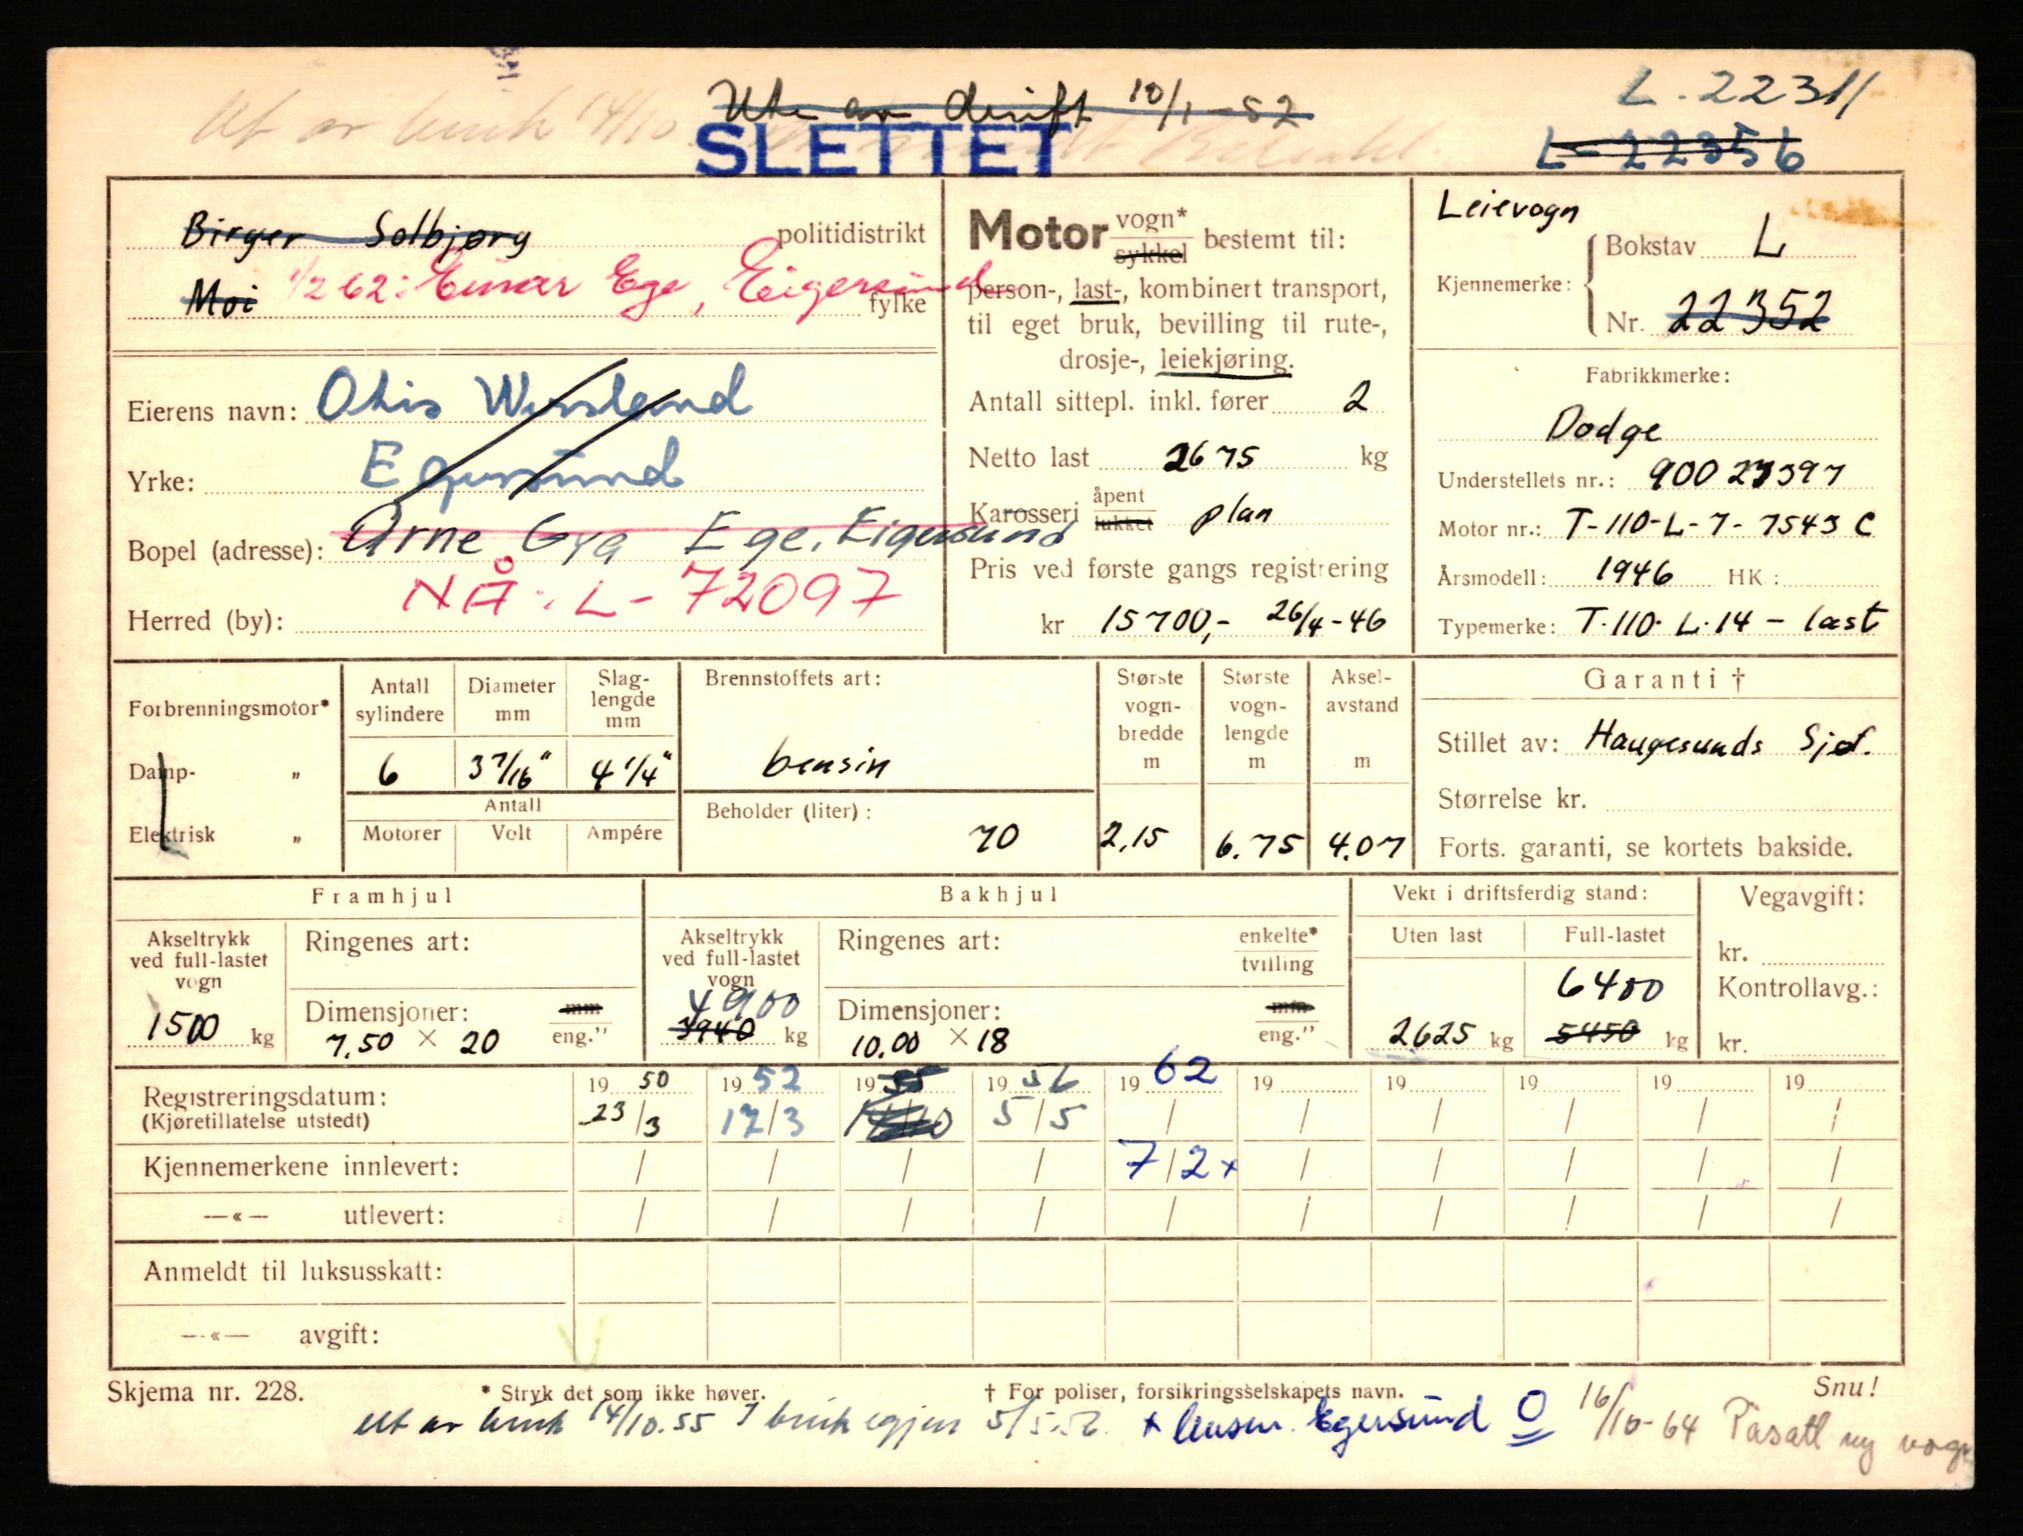 Ute av drift 10/1-52
L-22311
Ut av bruk 14/10
SLETTET
L-22356
Birger Solbjørg politidistrikt
Moi 1/2 62: Einar Ege, Eigersund fylke
Eierens navn: Otis Wersland
Yrke: Egersund
Bopel (adresse): Arne Gya Ege, Eigersund
NÅ: L-72097
Herred (by):
Motor vogn* sykkel bestemt til:
person-, last-, kombinert transport,
til eget bruk, bevilling til rute-,
drosje-, leiekjøring.
Antall sittepl. inkl. fører 2
Netto last 2675 kg
Karosseri åpent lukket plan
Pris ved første gangs registrering
kr 15700,- 26/4-46
Leievogn
Kjennemerke: Bokstav L
Nr. 22352
Fabrikkmerke:
Dodge
Understellets nr.: 90023397
Motor nr.: T-110-L-7-7543 C
Årsmodell: 1946 HK:
Typemerke: T.110.L.14 - last
Forbrenningsmotor*
Damp- „
Elektrisk „
Antall sylindere
6
Diameter mm
3 7/16"
Slag-lengde mm
4 1/4"
Antall
Motorer Volt Ampére
Brennstoffets art:
bensin
Beholder (liter):
70
Største vogn-bredde m
2.15
Største vogn-lengde m
6.75
Aksel-avstand m
4.07
Garanti †
Stillet av: Haugesunds Sjøf.
Størrelse kr.
Forts. garanti, se kortets bakside.
Framhjul
Akseltrykk ved full-lastet vogn
1500 kg
Ringenes art:
Dimensjoner: mm eng."
7.50 × 20
Bakhjul
Akseltrykk ved full-lastet vogn
4900
3940 kg
Ringenes art: enkelte* tvilling
Dimensjoner: mm eng."
10.00 × 18
Vekt i driftsferdig stand:
Uten last Full-lastet
6400
2625 kg 5450 kg
Vegavgift:
kr.
Kontrollavg.:
kr.
Registreringsdatum: 19 50 19 52 19 55 19 56 19 62 19 19 19 19 19
(Kjøretillatelse utstedt) 23/3 12/3 14/10 5/5 / / / / / /
Kjennemerkene innlevert: / / / / 7/2 x / / / / /
—«— utlevert: / / / / / / / / / /
Anmeldt til luksusskatt:
—«— avgift:
Skjema nr. 228.
* Stryk det som ikke høver.
† For poliser, forsikringsselskapets navn.
Snu!
Ut av bruk 14/10.55 I bruk igjen 5/5.56. x lensm. Egersund O 16/10-64 Påsatt ny vogn